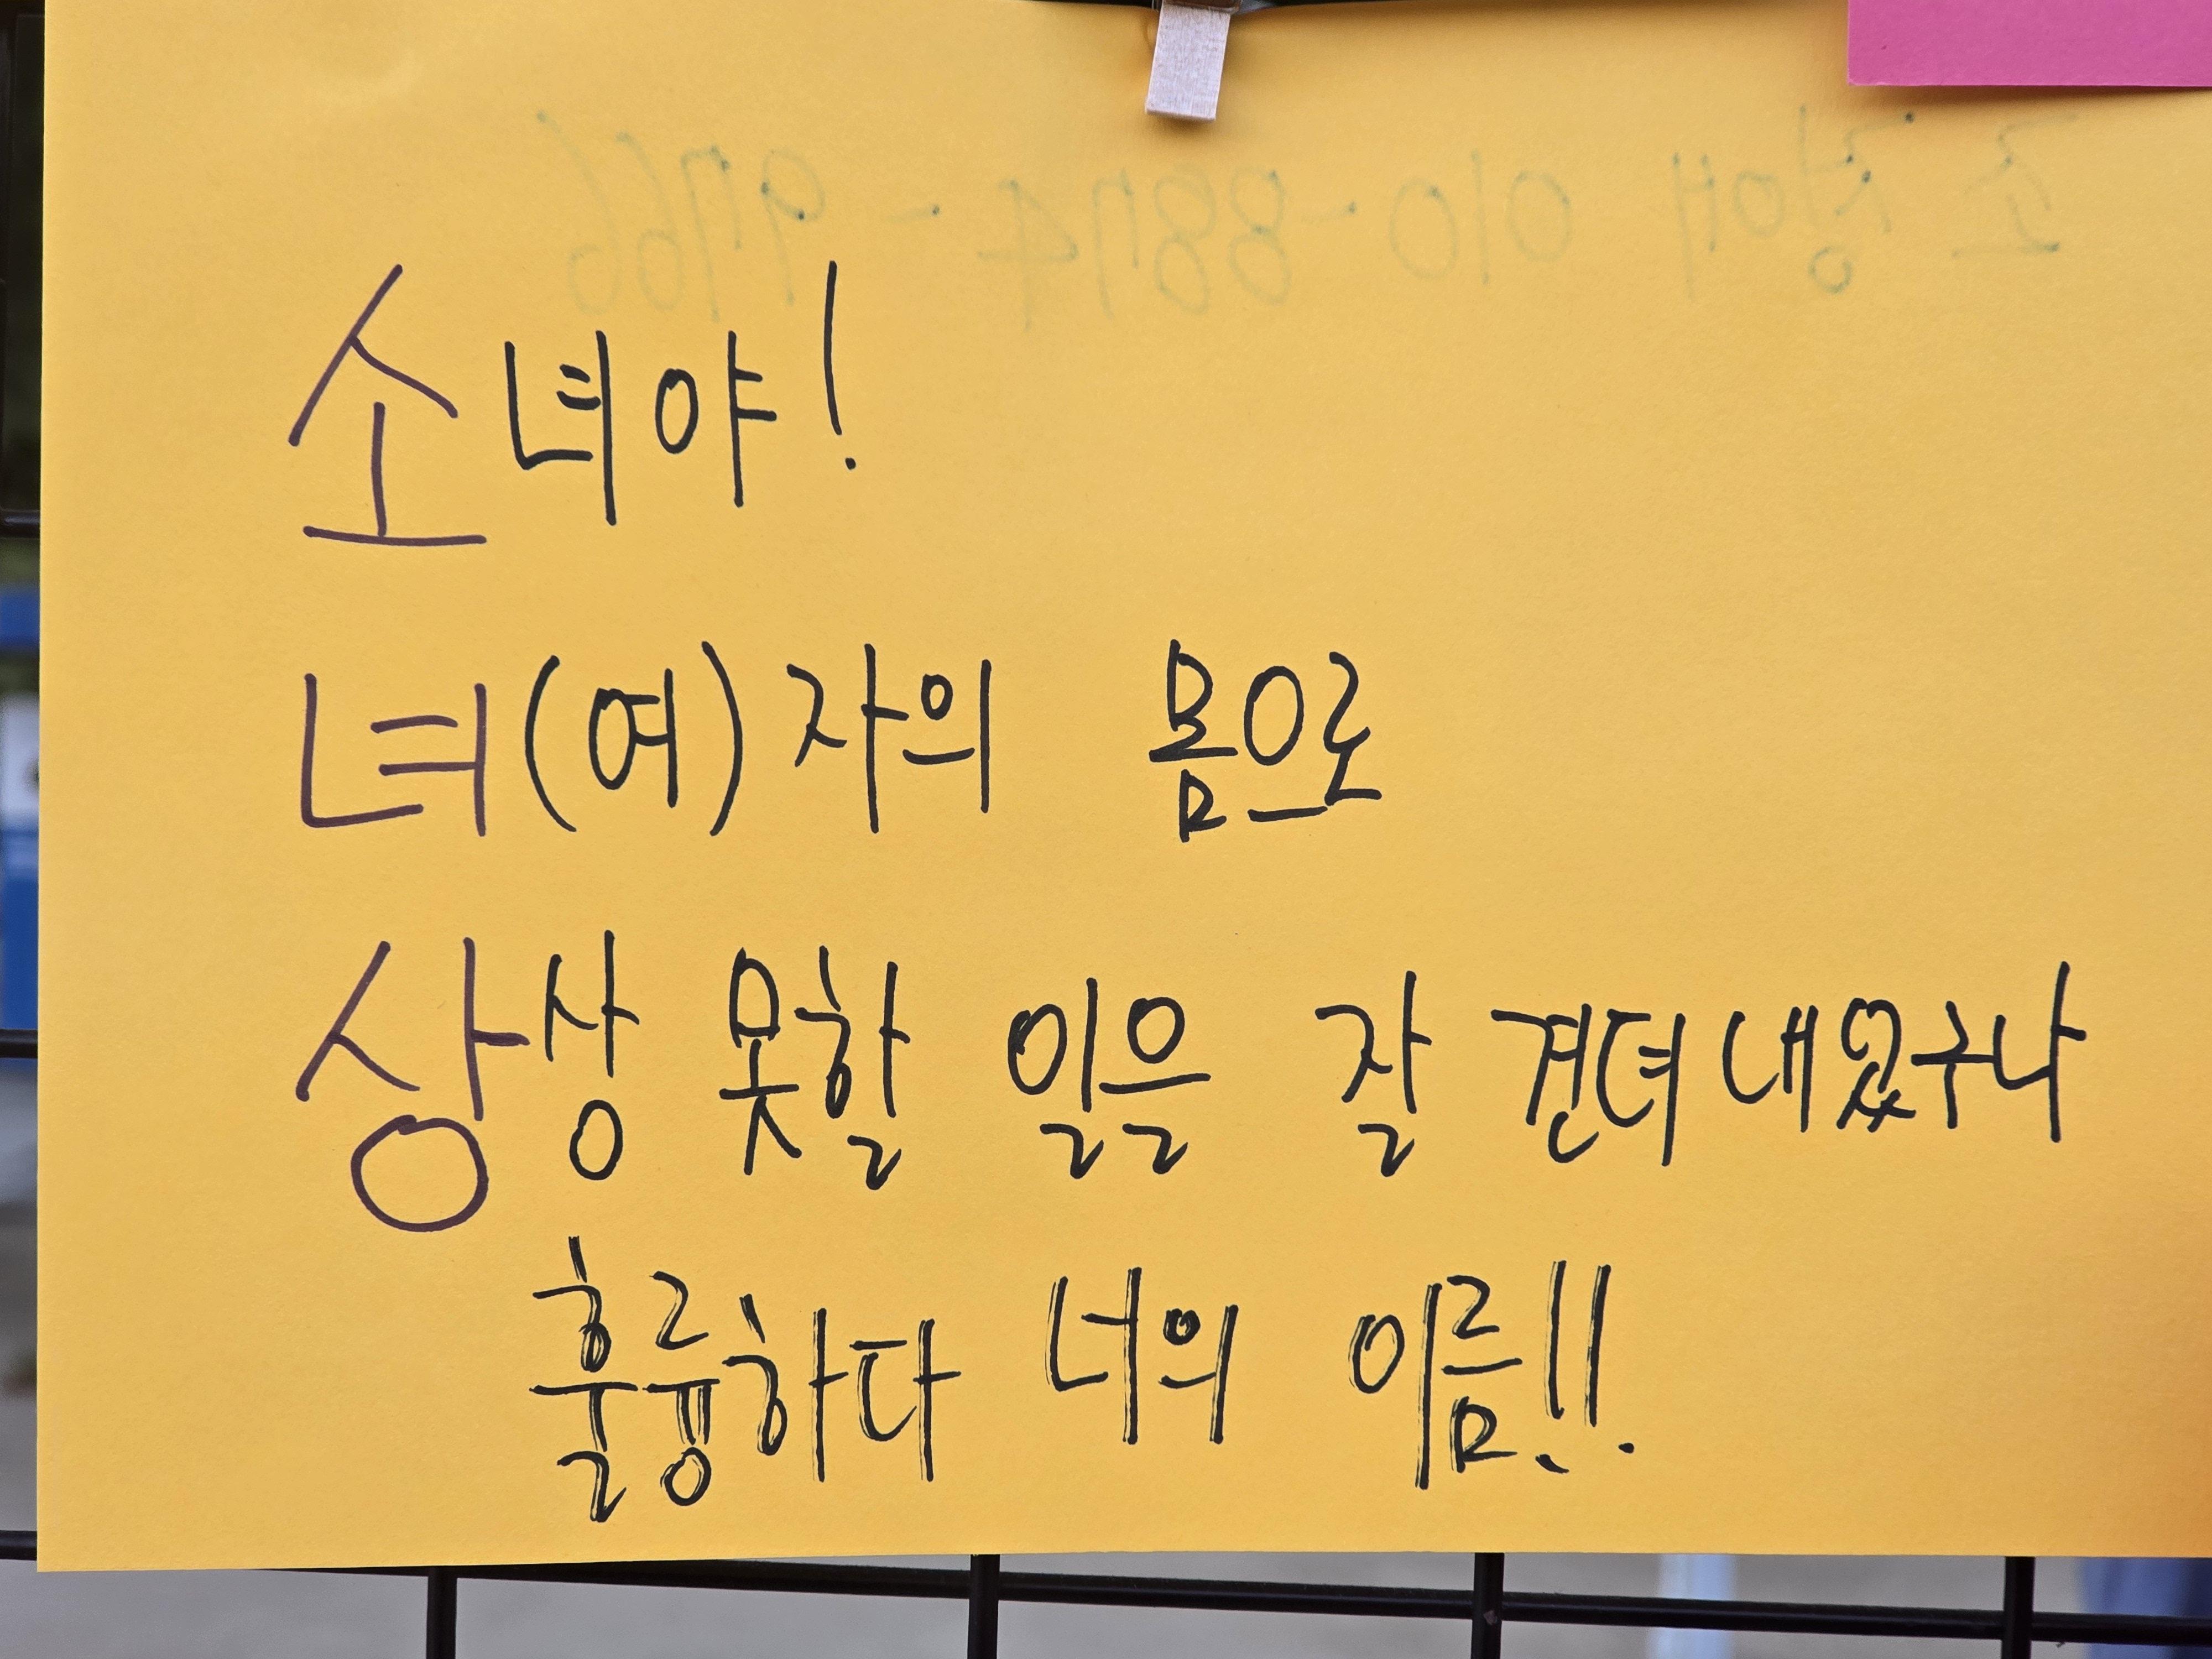 소녀야!
녀(여)자의 몸으로
상상 못할 일을 잘 견뎌 내었구나
훌륭하다 너의 이름!!